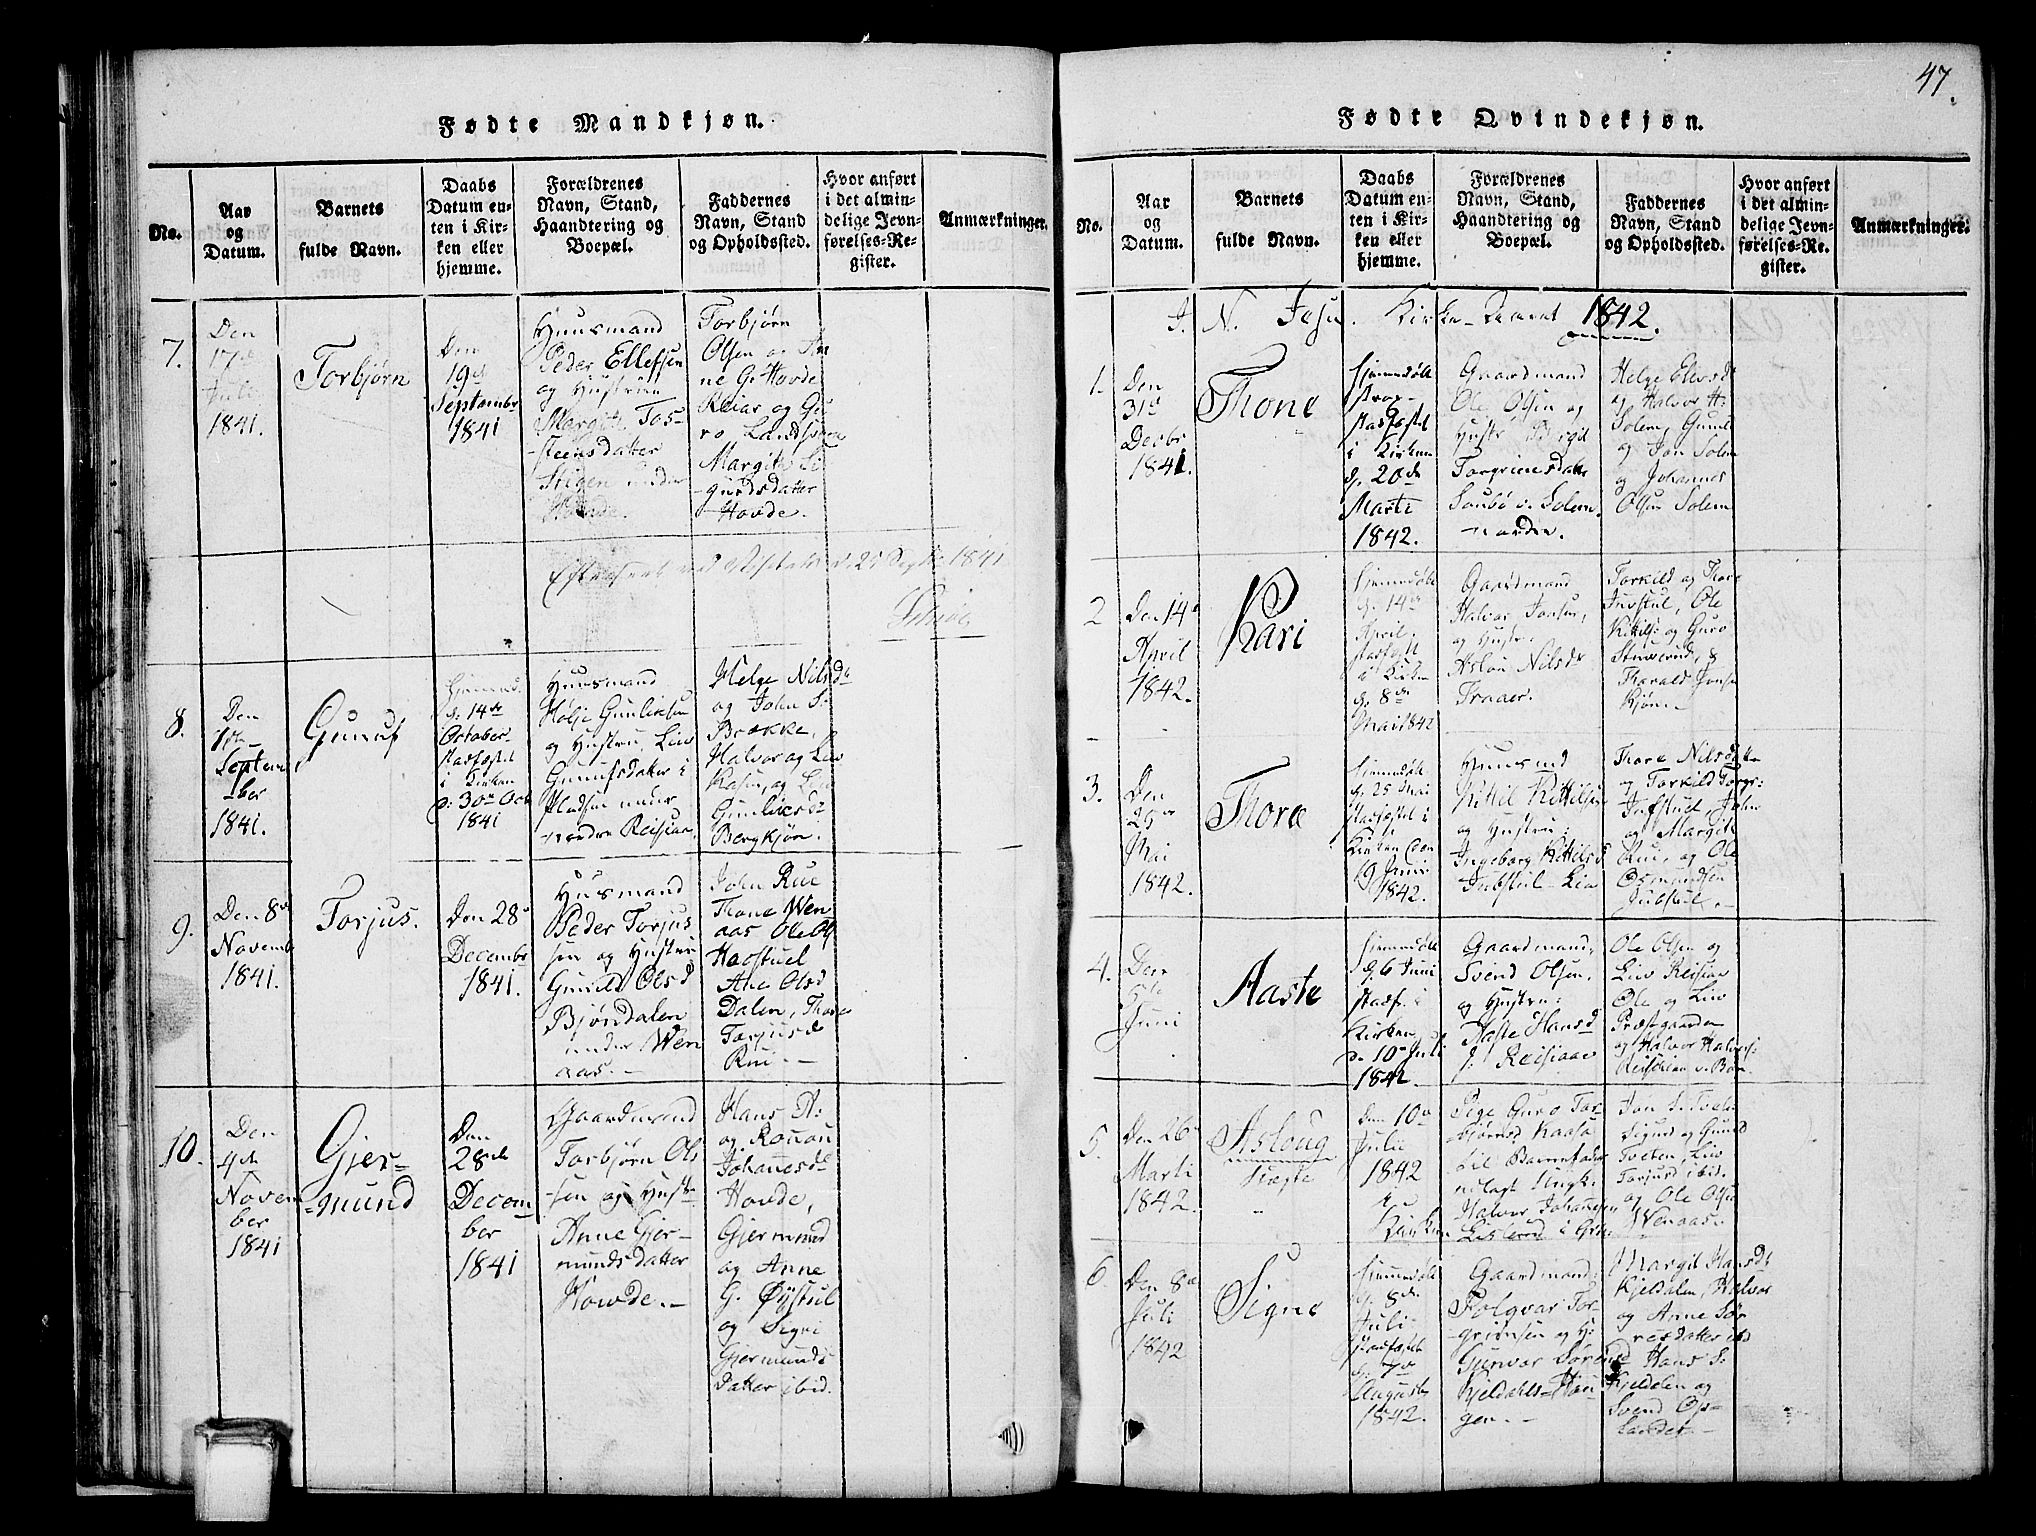 47.
Fødte Mandkjøn.
No.
Aar
og
Datum.
Barnets
fulde Navn.
Daabs
Datum en-
ten i Kir-
ken eller
hjemme.
Forældrenes
Navn, Stand,
Haandtering og
Boepæl.
Faddernes
Navn, Stand
og Opholdssted.
Hvor anført
i det almin-
delige Jevn-
førelses-Re-
gister.
Anmærkninger.
7.
Den
17de
Juli
1841.
Torbjørn
Den
19de
Septembr
1841
Huusmand
Peder Ellefsen
og Hustrue
Margit Tor-
steensdatter
Stigen under
Hovde.
Torbjørn
Olsen og An
ne G. Hovde
Reiar og Gu
ro Landsverk
Margit Si
gurdsdatter
Hovde.
1841
8.
Den
1ste
Septem
-ber
1841.
Gunuf
Hjemmed.
d. 14de
October
stadfæstet
i Kirken
d. 30te Oct
1841
Huusmand
Hølje Gunleiksen
og Hustru Liv
Gunufsdatter i
Pladsen under
nordre Reisjaa
Helge Nilsdr
og John S.
Brække,
Halvor og Liv
Kasin, og Liv
Gunleiksdr
Bergkjøn.
9.
Den 8de
Novemb
1841.
Torjus.
Den 28de
Decembr
1841.
Husmand
Peder Torjus
sen og Hustrue
Gunild Olsd
Bjøndalen
under Wen
aas.
John Rue
Thone Wen
aas Ole O
Haastuel
Ane Olsd
Dalen, Thore
Torjusd
Rui.
10.
Den
4de
Novem
ber
1841
Gjer-
mund
Den
28de
Decem
ber
1841
Gaardmand
Torbjørn Ol
sen og Hustr
Anne Gjer-
mundsdatter
Howde.
Hans A.
og Rønnou
Johannesdr
Hovde,
Gjermund
og Anne
G. Øystul
og Signi
Gjermunds
datter ibid.
Fødte Qvindekjøn.
No.
Aar
og
Datum.
Barnets
fulde Navn.
Daabs
Datum en-
ten i Kir-
ken eller
hjemme.
Forældrenes
Navn, Stand,
Haandtering og
Boepæl.
Faddernes
Navn, Stand
og Opholdssted.
Hvor anført
i det almin-
delige Jevn-
førelses-Re-
gister.
Anmærkninger.
J. N. Jesu. Kirke-Aaret 1842.
1.
Den
31te
Decbr
1841.
Thone
Hjemmedøbt
stadfæstet
i Kirken
d. 20de
Marti
1842.
Gaardmand
Ole Olsen og
Hustr Birgit
Torgrimsdatter
Solem
nordre.
Helge
og Halvor H.
Solem, Gunil
og Jon Solem
og Johannes
Olsen Solem
2
Den 14de
April
1842.
Kari
Hjemmedøbt
d. 14de
April
stadfæstet
i Kirken
d. 8de
Mai 1842
Gaardmand
Halvor Jonsen,
og Hustr.
Aslou Nilsdr
Traaer.
Torkild og Thore
Juvstul, Ole
Kittils: og Guro
Stenserud, &
Thorald Jonsen
Kjøn.
3.
Den
25de
Mai
1842.
Thore
Hjemmedøbt
d. 25 Mai
stadfæstet i
Kirken den
9 Junii
1842.
Huusmd
Kittil Kittilsen
og Hustru:
Ingeborg Kittilsd
Juvstul-Lien
Thore Nilsdatter
og Torkild Torgr:
Juvstuel, John
og Margit
Rui, og Ole
Osmundsen
Juvstul.
4.
Den
5te
Juni
Aaste
Hjemmedøbt
d. 6 Juni
stadf. i
Kirken
d. 10de Juli
1842.
Gaardmand,
Svend Olsen,
og Hustru:
Aaste Hansd
Reisjaae
Ole Olsen og
Liv Reisjaae
Ole og Liv
Præstgaarden
og Halvor Halvors:
5.
Den 26de
Marti
1842.
Aslaug
Uægte
Den 10de
Julii
1842
Kirken
Pige Guro Tor-
bjørnsd Kaasa
til Barnefader
udlagt Ungk:
Halvor Johannesen
Jon S. Tveten
Sigurd og Gunild
Tveten, Liv
Torjusd ibid.
og Ole Olsen
Wenaas.
6.
Den 8de
Juli
1842
Signe
Hjemmedøbt
d. 8de
Juli
stadfæstet
d. 7de
Augusti
1842.
Gaardmand:
Folqvar Tor-
grimsen og H:
Gunvor Sørensd
Kjeldahls-Hau
gen.
Margit Hansdr
Kjeldalen, Halvor
og Anne Sør
resdatter ibid
Hans S.
Kjeldalen og
Svend Op-
landet